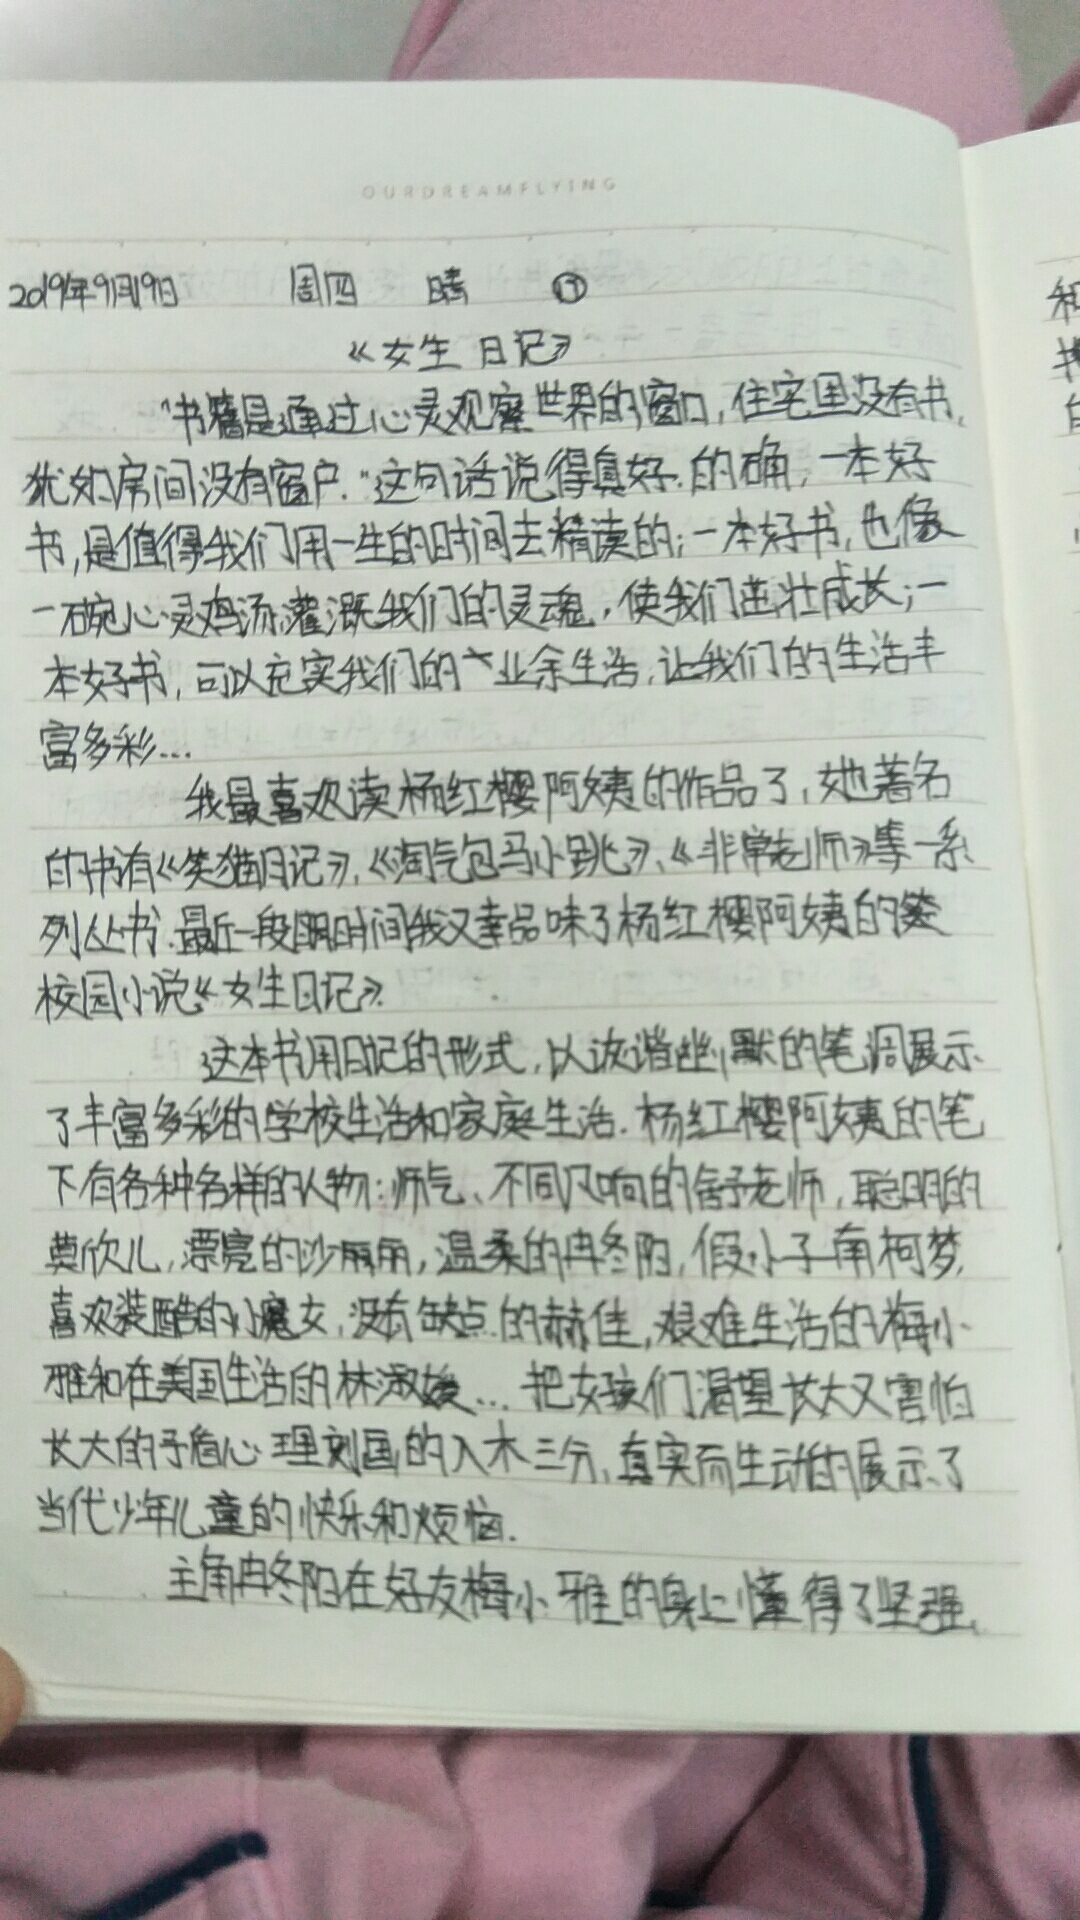 OURDREAMFLYING
2019年9月19日 周四 晴 ⑰
《女生日记》
"书籍是通过心灵观察世界的窗口,住宅里没有书,
犹如房间没有窗户."这句话说得真好.的确,一本好
书,是值得我们用一生的时间去精读的;一本好书,也像
一碗心灵鸡汤灌溉我们的灵魂,使我们茁壮成长;一
本好书,可以充实我们的业余生活,让我们的生活丰
富多彩...
我最喜欢读杨红樱阿姨的作品了,她著名
的书有《笑猫日记》,《淘气包马小跳》、《非常老师》等一系
列丛书.最近一段时间我又品味了杨红樱阿姨的
校园小说《女生日记》.
这本书用日记的形式,以诙谐幽默的笔调展示
了丰富多彩的学校生活和家庭生活.杨红樱阿姨的笔
下有各种各样的人物:师气、不同凡响的舒老师,聪明的
莫欣儿,漂亮的沙丽丽,温柔的冉冬阳,假小子南柯梦,
喜欢装酷的小魔女,没有缺点的赫佳,艰难生活的梅小
雅和在美国生活的林淑媛...把女孩们渴望长大又害怕
长大的矛盾心理刻画的入木三分,真实而生动的展示了
当代少年儿童的快乐和烦恼.
主角冉冬阳在好友梅小雅的身上懂得了坚强,
和